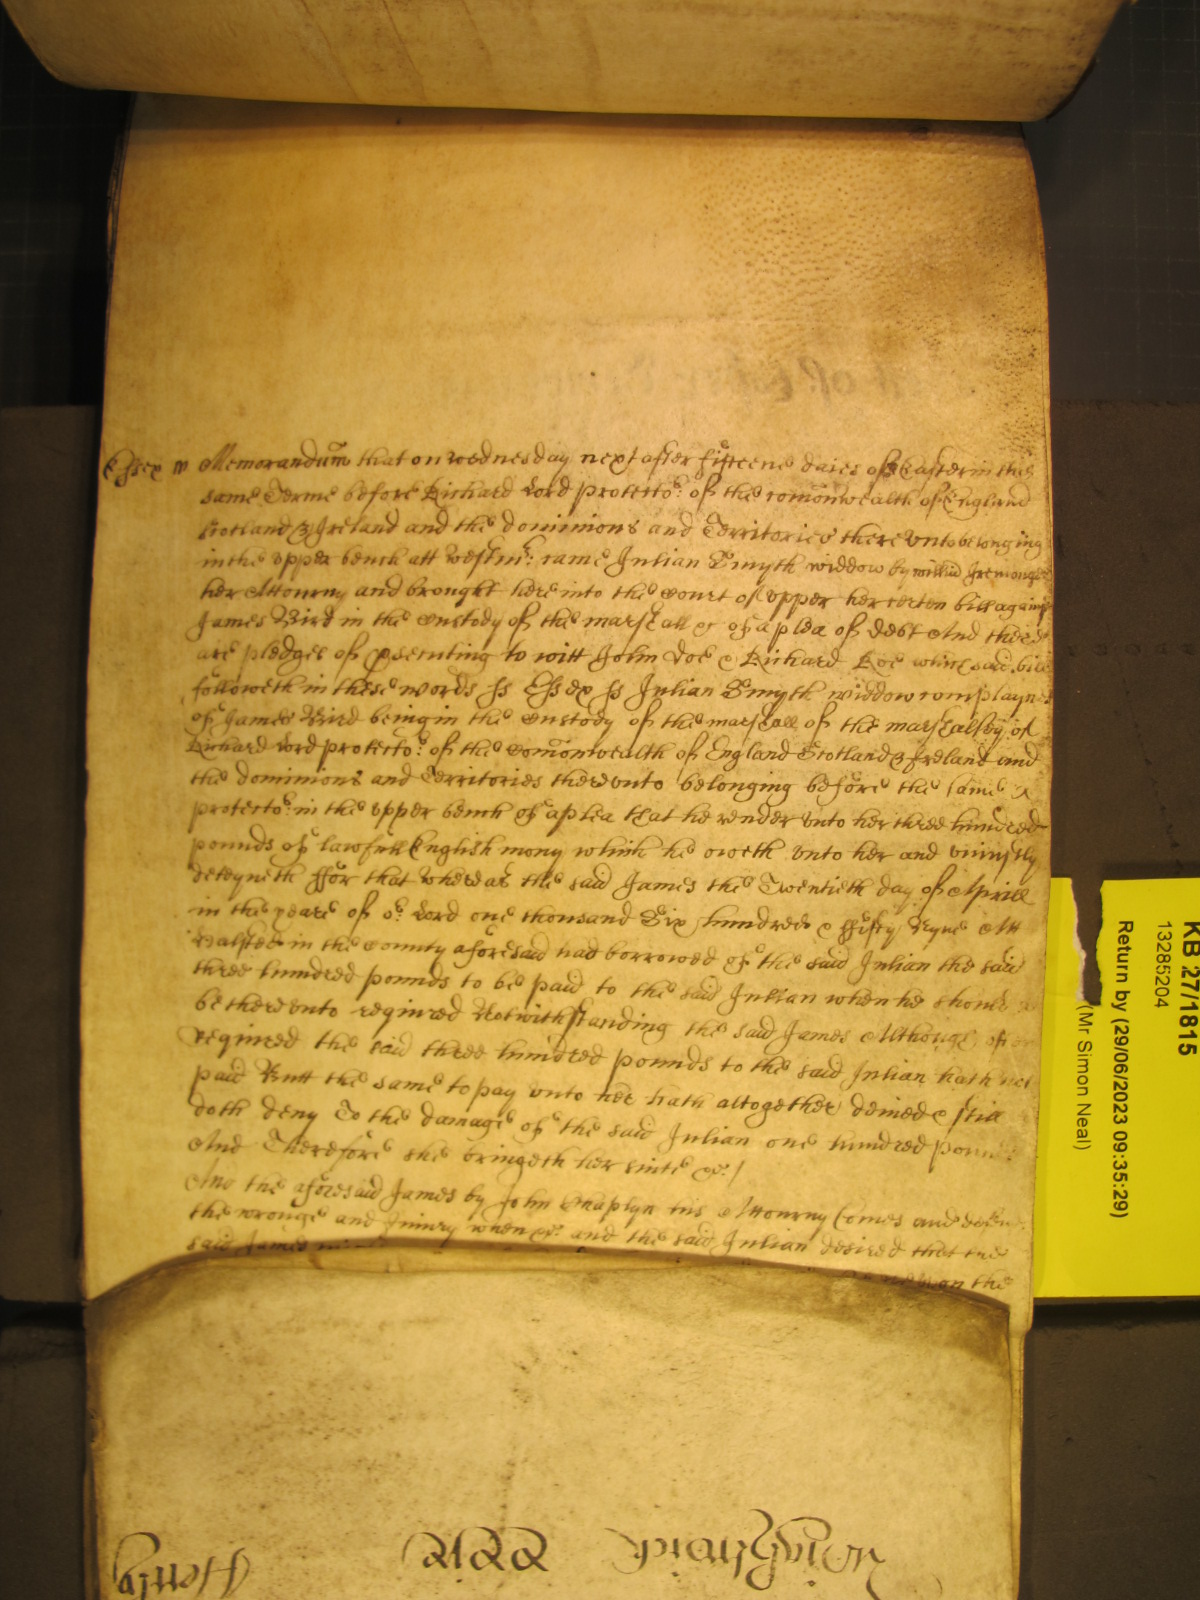 Essex ss Memorandum that on wednesday next after fifteene daies of Easter in this
same Terme before Richard Lord protector of the comonwealth of England
Scotland & Ireland and the dominions and Territories there unto belonging
in the upper bench att westmr: came Julian Smyth widdow by willm Iremonger
her Attourny and brought here into the Court of upper her certen bill against
James Bird in the Custody of the marshall &c of a plea of debt And there
are pledges of psecuting to witt John Doe & Richard Roe which said bill
followeth in these words ss Essex ss Julian Smyth widdow complaynes
of James Bird being in the Custody of the marshall of the marshalsey of
Richard Lord protector of the Comonwealth of England Scotland & Ireland and
the dominions and Territories thereunto belonging before the same
protector in the upper bench of a plea that he render unto her three hundred
pounds of lawfull English mony which he oweth unto her and uniustly
deteyneth ffor that whereas the said James the Twentieth day of Aprill
in the yeare of or Lord one thousand Six hundred & ffifty Nyne Att
Halsted in the County aforesaid had borrowed of the said Julian the said
three hundred pounds to be paid to the said Julian when he should
be thereunto required Notwithstanding the said James Although often
required the said three hundred pounds to the said Julian hath not
paid Butt the same to pay unto her hath altogether denied & still
doth deny To the damage of the said Julian one hundred pounds
And Therefore she bringeth her suite &c /
And the aforesaid James by John Chaplyn his Attourny Comes and
the wronge and Iniury when &c and the said Julian desired that the
said James
upon the
KB 27/1815
13285204
Return by (29/06/2023 09:35:29)
(Mr Simon Neal)